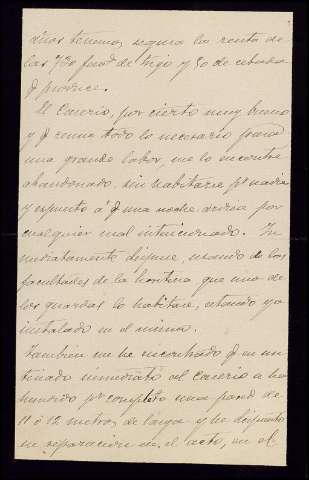 años tenemos segura la renta de
las 730 faneds de trigo y 50 de cebada
q produce.
El Caserio, por cierto muy bueno
y q reune todo lo necesario para
una grande labor, me lo encontré
abandonado, sin habitarse pr nadie
y espuesto á q una noche ardiera por
cualquier mal intencionado. In
mediatamente dispuse, usando de las
facultades de la hontera, que uno de
los guardas lo habitase, estando ya
instalado en el mismo.
Tambien me he encontrado q en un
tinado inmediato al Caserio se ha
hundido pr completo una pared de
11 ó 12 metros de larga y he dispuesto
su reparacion en el acto, en el